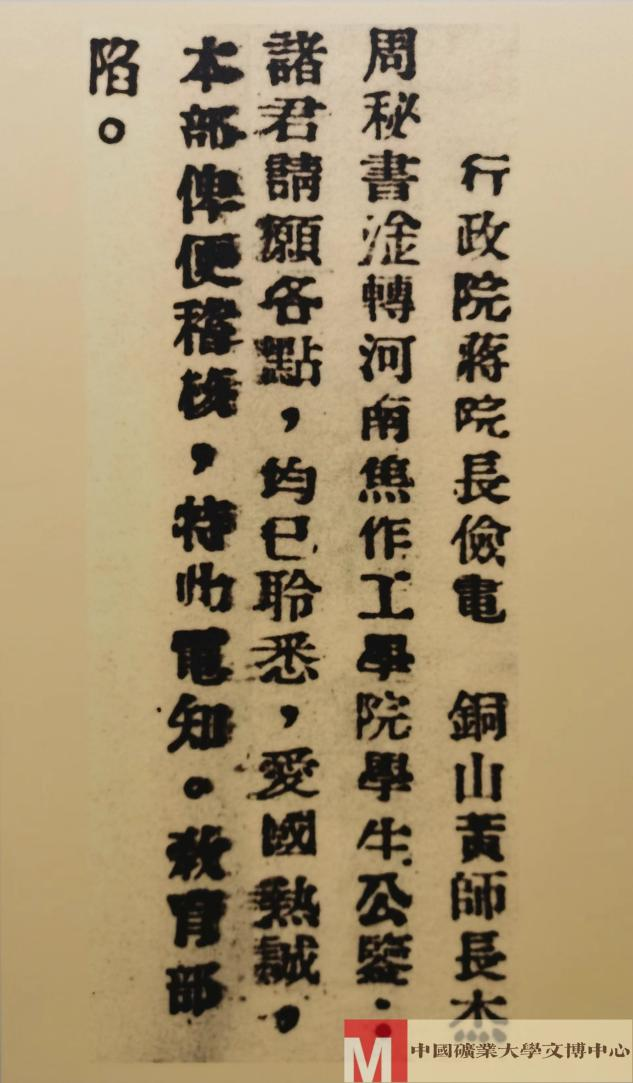 行政院蔣院長儉電　銅山黃師長杰
周秘書淦轉河南焦作工學院學生公鑒．
諸君請願各點，均已聆悉，愛國熱誠。
本部俾便稽核，特此電知。教育部
陷。
中國礦業大學文博中心